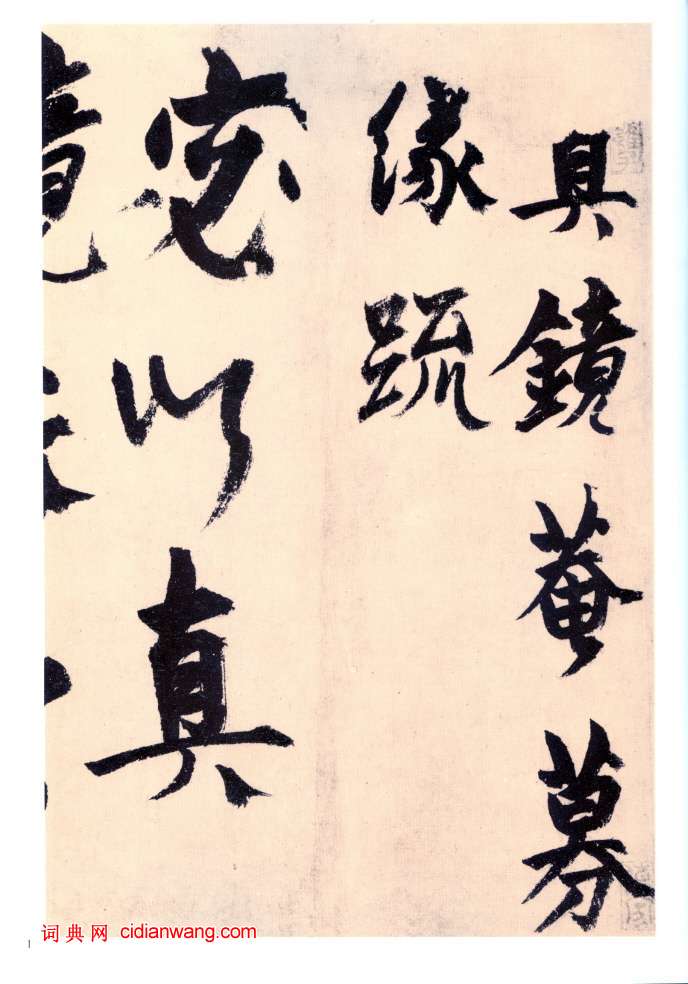 具鏡菴募
緣疏
窃以真
词典网 cidianwang.com
1